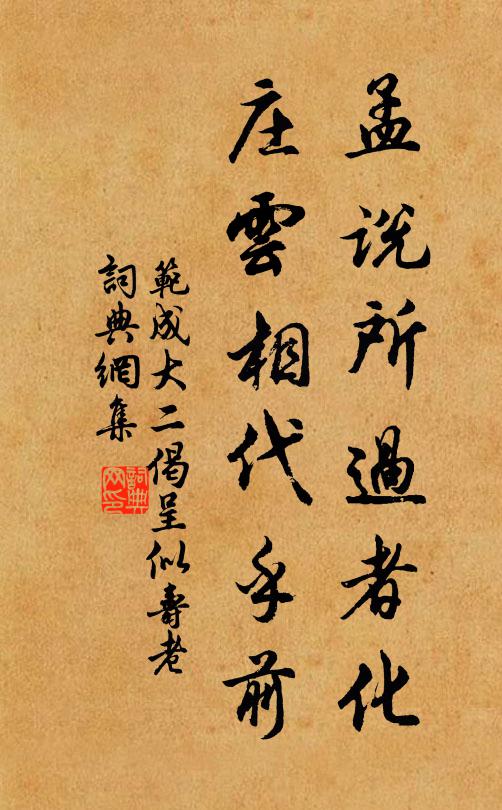 孟说所過者化
庄雲相代乎前
範成大二偈呈似壽老
詞典網集
詞典网印